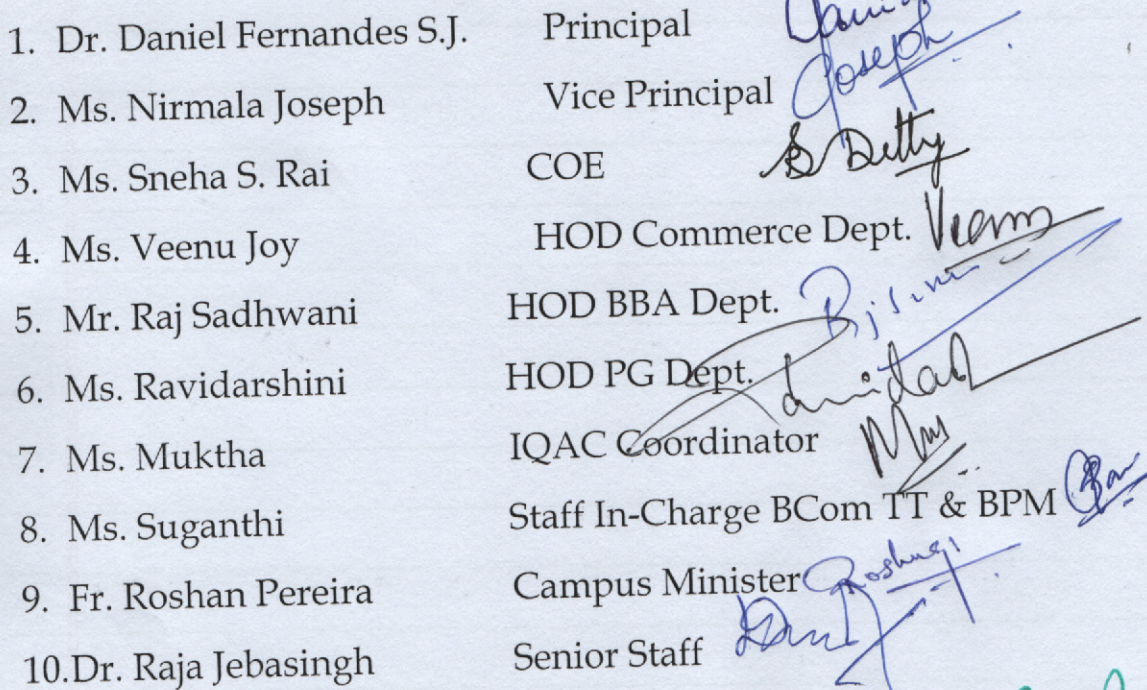 1. Dr. Daniel Fernandes S.J. Principal
2. Ms. Nirmala Joseph Vice Principal Joseph
3. Ms. Sneha S. Rai COE
4. Ms. Veenu Joy HOD Commerce Dept.
5. Mr. Raj Sadhwani HOD BBA Dept.
6. Ms. Ravidarshini HOD PG Dept.
7. Ms. Muktha IQAC Coordinator
8. Ms. Suganthi Staff In-Charge BCom TT & BPM
9. Fr. Roshan Pereira Campus Minister
10.Dr. Raja Jebasingh Senior Staff